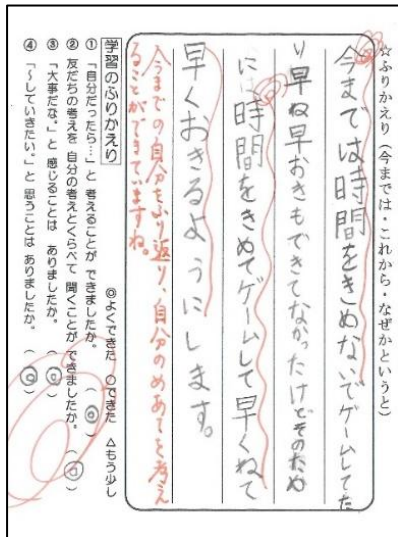 ☆ふりかえり(今までは・これから・なぜかというと)
今までは時間をきめないでゲームしてた
り早ね早おきもできてなかったけどそのため
に時間をきめてゲームして早くねて
早くおきるようにします。
今までの自分をふり返り、自分のめあてを考え
ることができていますね。
学習のふりかえり
◎よくできた ○できた △もう少し
① 「自分だったら…」と 考えることが できましたか。 (◎)
② 友だちの考えを 自分の考えとくらべて 聞くことが できましたか。 (◎)
③ 「大事だな。」と 感じることは ありましたか。 (◎)
④ 「～していきたい。」と 思うことは ありましたか。 (◎)